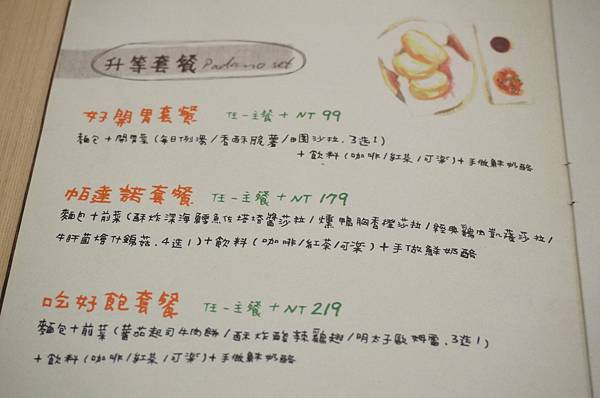 升等套餐 Padano set
好開胃套餐 任一主餐 + NT 99
麵包 + 開胃菜 (每日例湯 / 香酥脆薯 / 田園沙拉. 3選1)
+ 飲料 (咖啡/紅茶/可樂) + 手做鮮奶酪
帕達諾套餐 任一主餐 + NT 179
麵包 + 前菜 (酥炸深海鱈魚佐塔塔醬莎拉 / 燻鴨胸香橙莎拉 / 經典雞肉凱薩莎拉 /
牛肝菌燴什錦菇. 4選1) + 飲料 (咖啡/紅茶/可樂) + 手做鮮奶酪
吃好飽套餐 任一主餐 + NT 219
麵包 + 前菜 (蕃茄起司牛肉餅 / 酥炸酸辣雞翅 / 明太子歐姆蛋. 3選1)
+ 飲料 (咖啡/紅茶/可樂) + 手做鮮奶酪